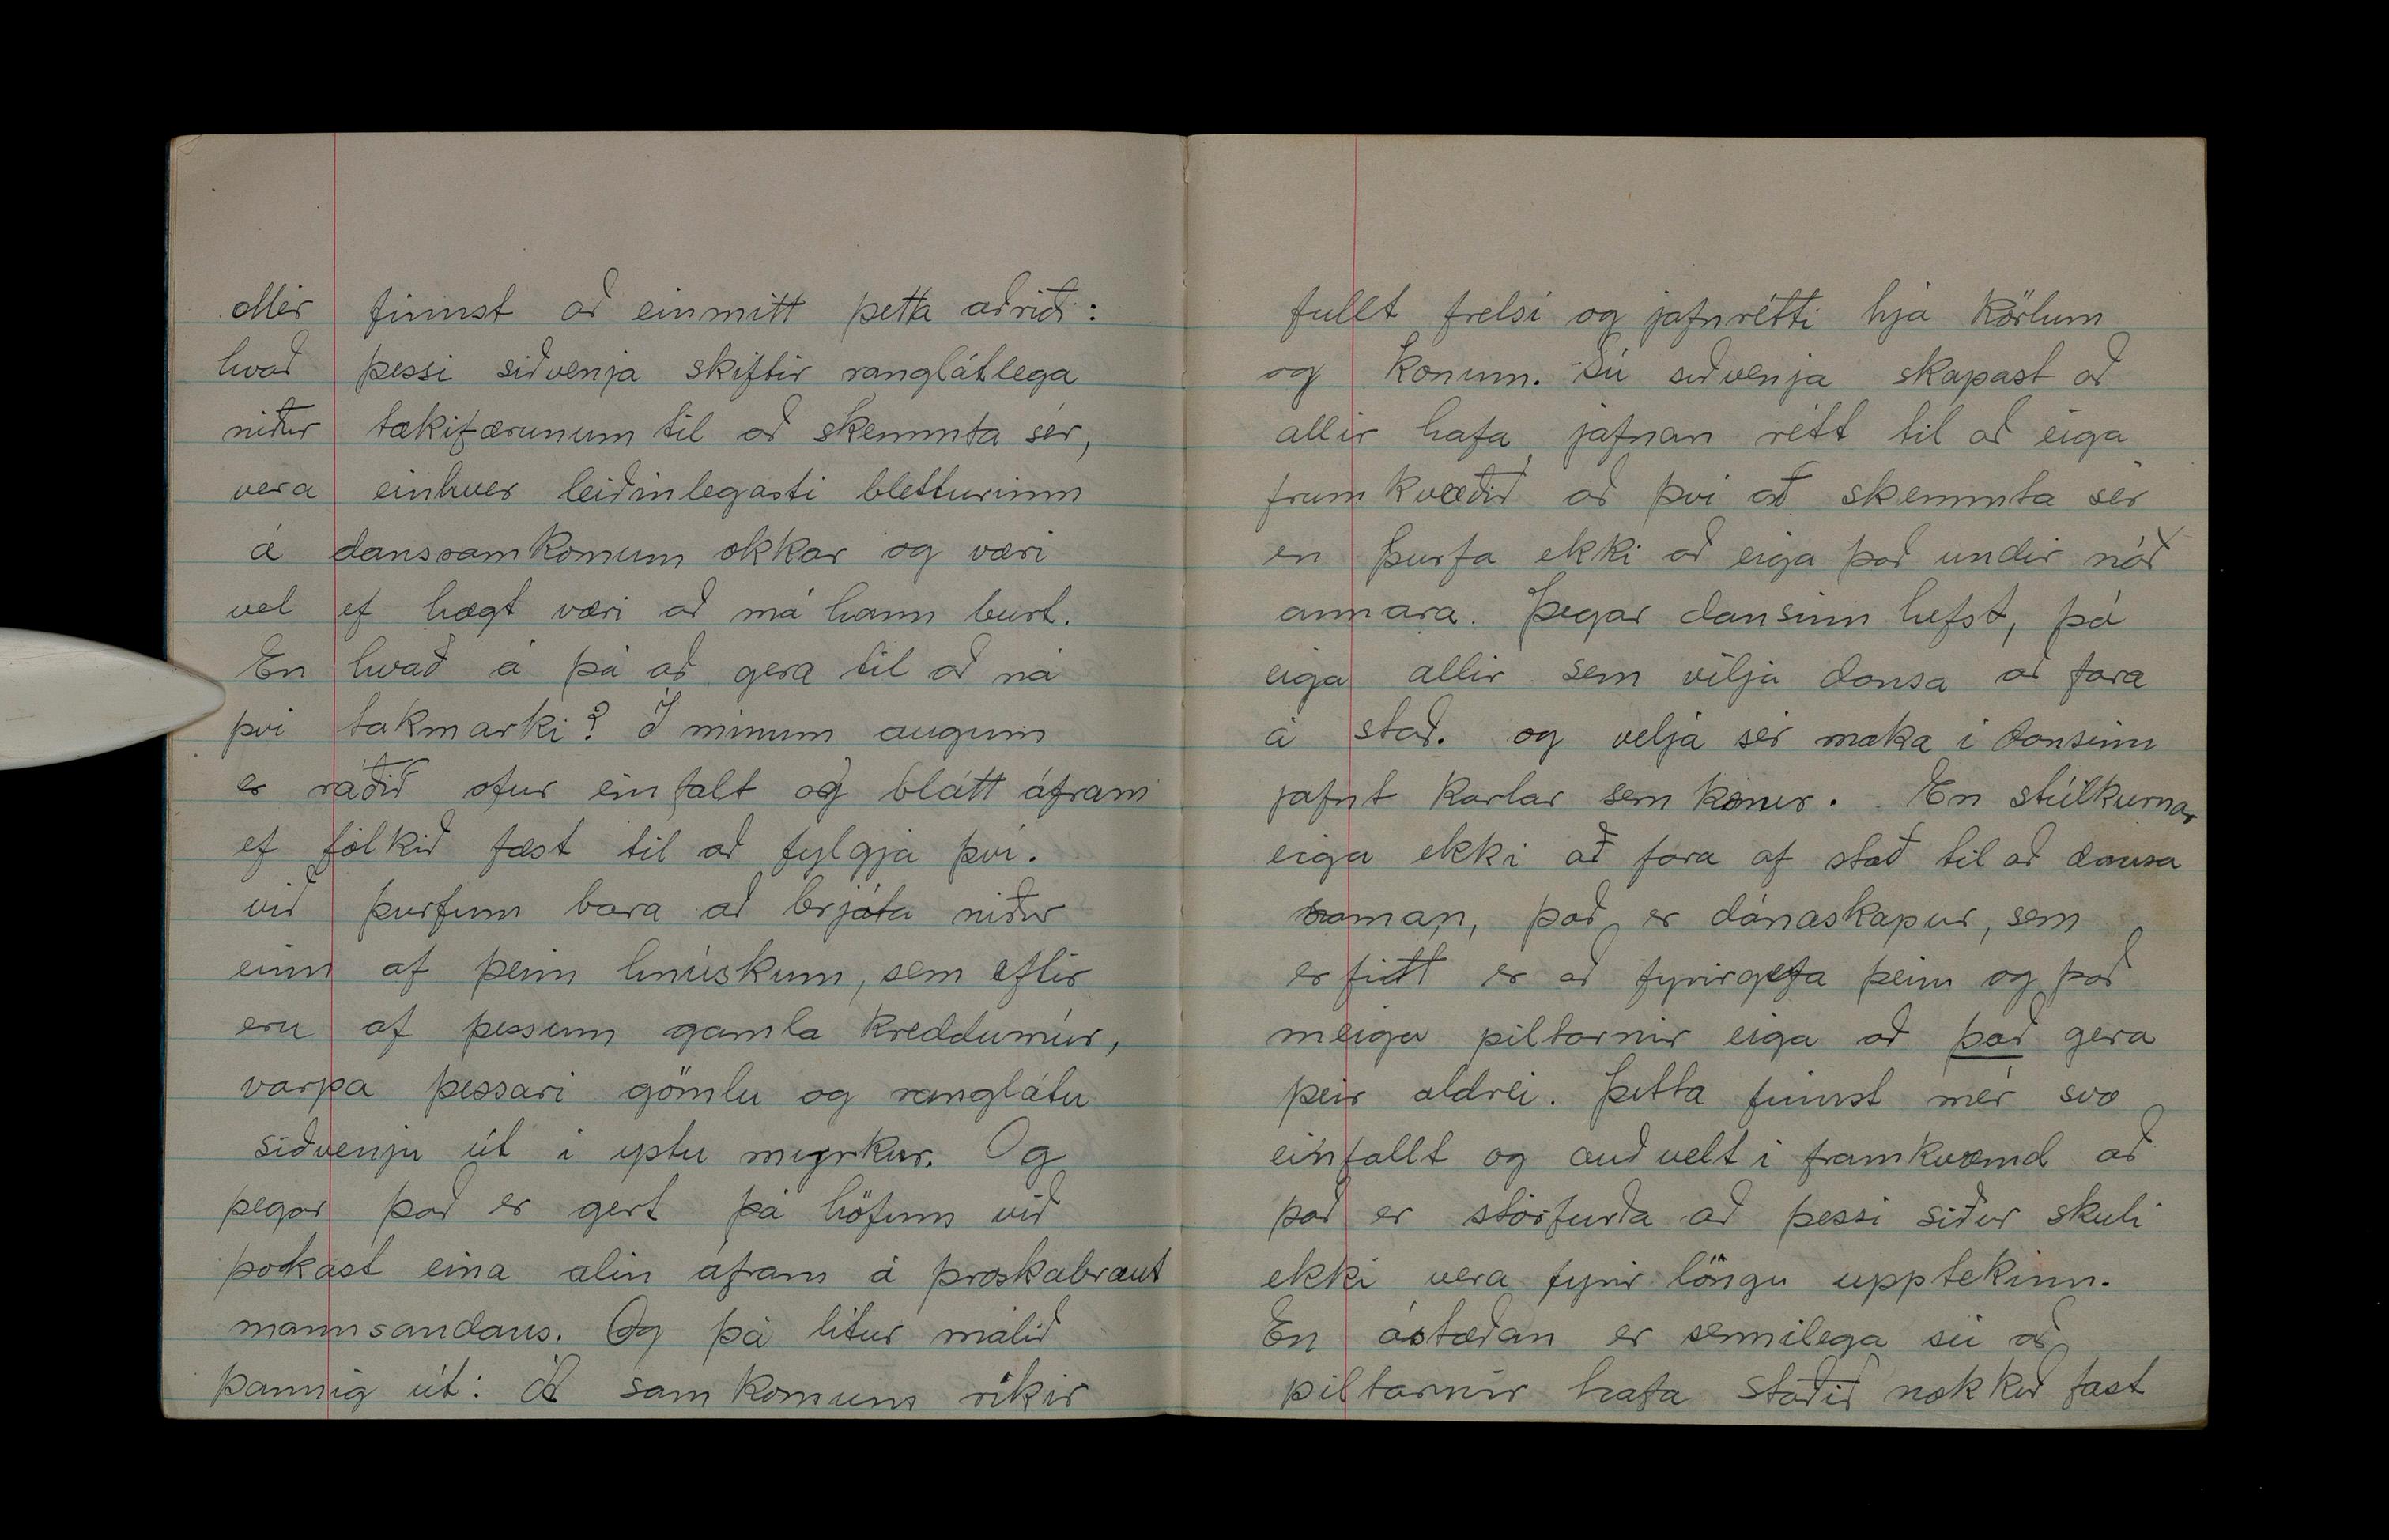 Mér finnst að einmitt þetta atriði:
hvað þessi siðvenja skiftir ranglátlega
niður tækifærunum til að skemmta sér,
vera einhver leiðinlegasti bletturinn
á danssamkomum okkar og væri
vel ef hægt væri að má hann burt.
En hvað á þá að gera til að ná
því takmarki? Í mínum augum
er ráðið ofur einfalt og blátt áfram
ef fólkið fæst til að fylgja því.
við þurfum bara að brjóta niður
einn af þeim hnúskum, sem eftir
eru af þessum gamla kreddumúr,
varpa þessari gömlu og ranglátu
siðvenju út í ystu myrkur. Og
þegar það er gert þá höfum við
þokast eina alin áfram á þroskabraut
mannsandans. Og þá lítur málið
þannig út: Á samkomum ríkir
fullt frelsi og jafnrétti hjá körlum
og konum. Sú siðvenja skapast að
allir hafa jafnan rétt til að eiga
frumkvæðið að því að skemmta sér
en þurfa ekki að eiga það undir náð
annara. Þegar dansinn hefst, þá
eiga allir sem vilja dansa að fara
á stað. og velja sér maka í dansinn
jafnt karlar sem konur. En stúlkurnar
eiga ekki að fara af stað til að dansa
saman, það er dónaskapur, sem
erfitt er að fyrirgefa þeim og það
meigu piltarnir eiga að það gera
þeir aldrei. Þetta finnst mér svo
einfallt og auðvelt í framkvæmd að
það er stórfurða að þessi siður skuli
ekki vera fyrir löngu upptekinn.
En ástæðan er sennilega sú að
piltarnir hafa staðið nokkuð fast